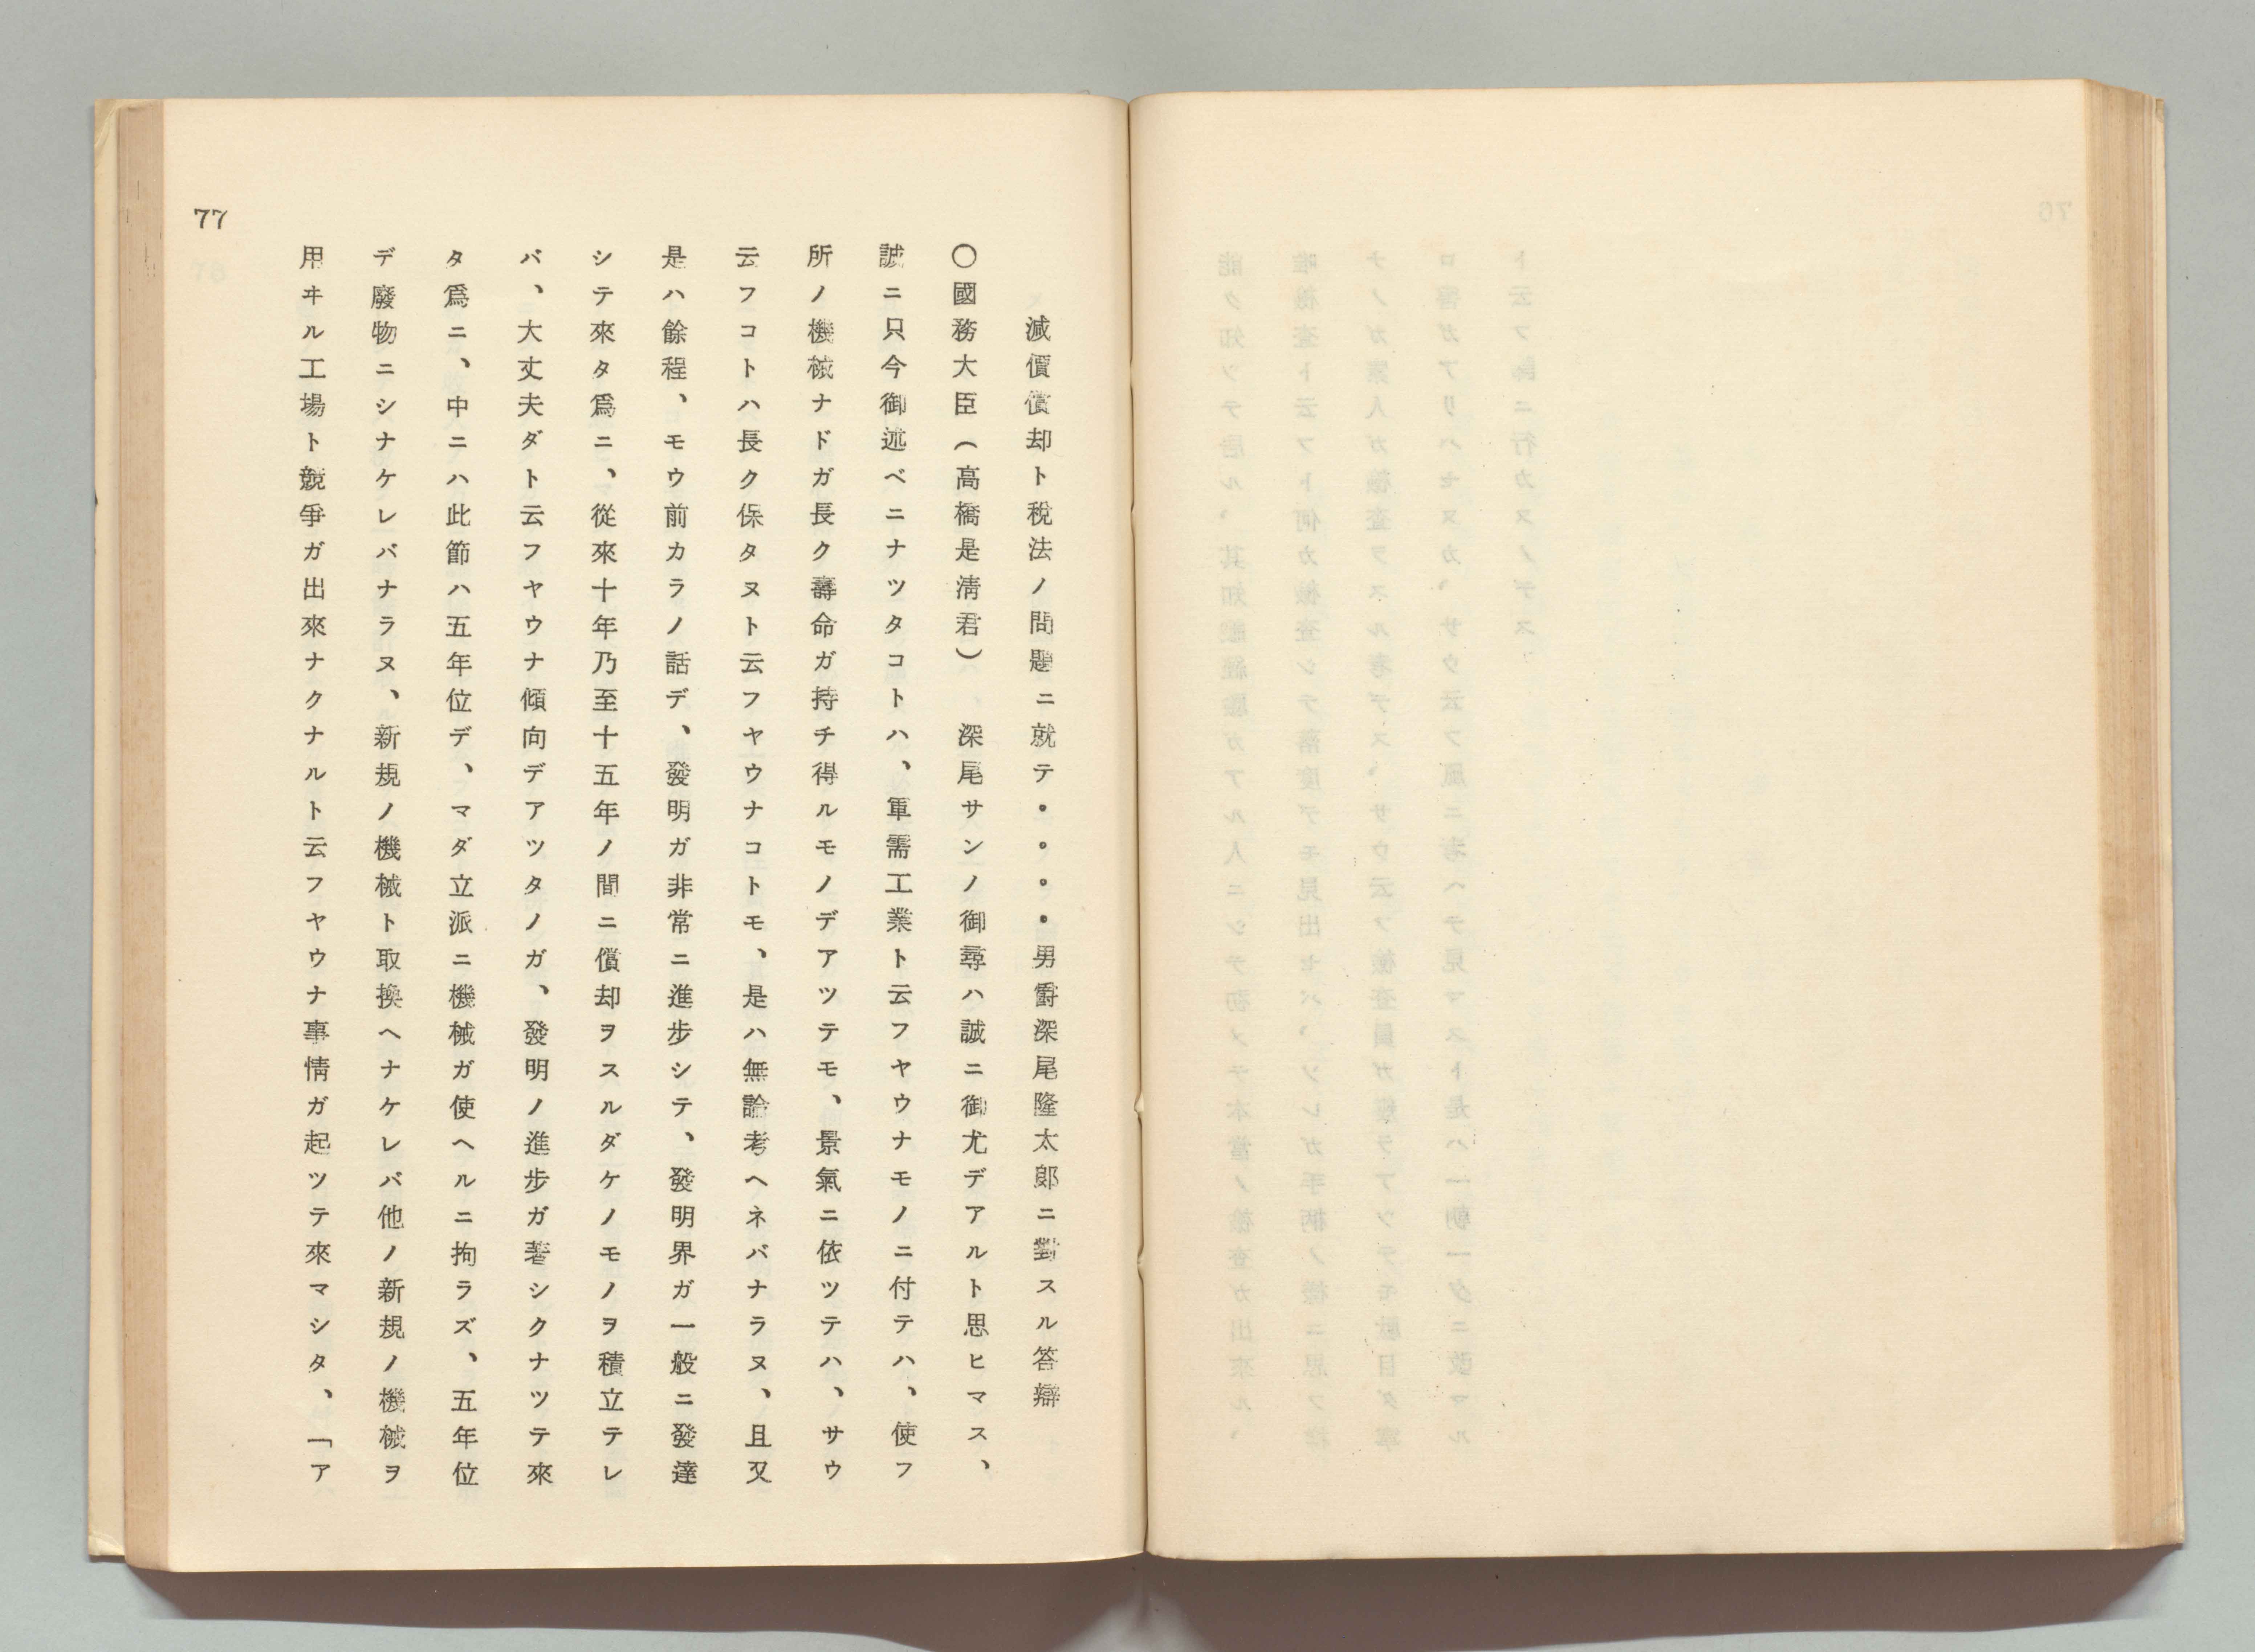 減價償却ト稅法ノ問題ニ就テ・。。・男爵深尾隆太郞ニ對スル答辯
〇國務大臣(高橋是淸君)　深尾サンノ御尋ハ誠ニ御尤デアルト思ヒマス、
誠ニ只今御述ベニナツタコトハ、軍需工業ト云フヤウナモノニ付テハ、使フ
所ノ機械ナドガ長ク壽命ガ持チ得ルモノデアツテモ、景氣ニ依ツテハ、サウ
云フコトハ長ク保タヌト云フヤウナコトモ、是ハ無論考ヘネバナラヌ、且又
是ハ餘程、モウ前カラノ話デ、發明ガ非常ニ進步シテ、發明界ガ一般ニ發達
シテ來タ爲ニ、從來十年乃至十五年ノ間ニ償却ヲスルダケノモノヲ積立テレ
バ、大丈夫ダト云フヤウナ傾向デアツタノガ、發明ノ進步ガ著シクナツテ來
タ爲ニ、中ニハ此節ハ五年位デ、マダ立派ニ機械ガ使ヘルニ拘ラズ、五年位
デ廢物ニシナケレバナラヌ、新規ノ機械ト取換ヘナケレバ他ノ新規ノ機械ヲ
用ヰル工場ト競爭ガ出來ナクナルト云フヤウナ事情ガ起ツテ來マシタ、「ア
77